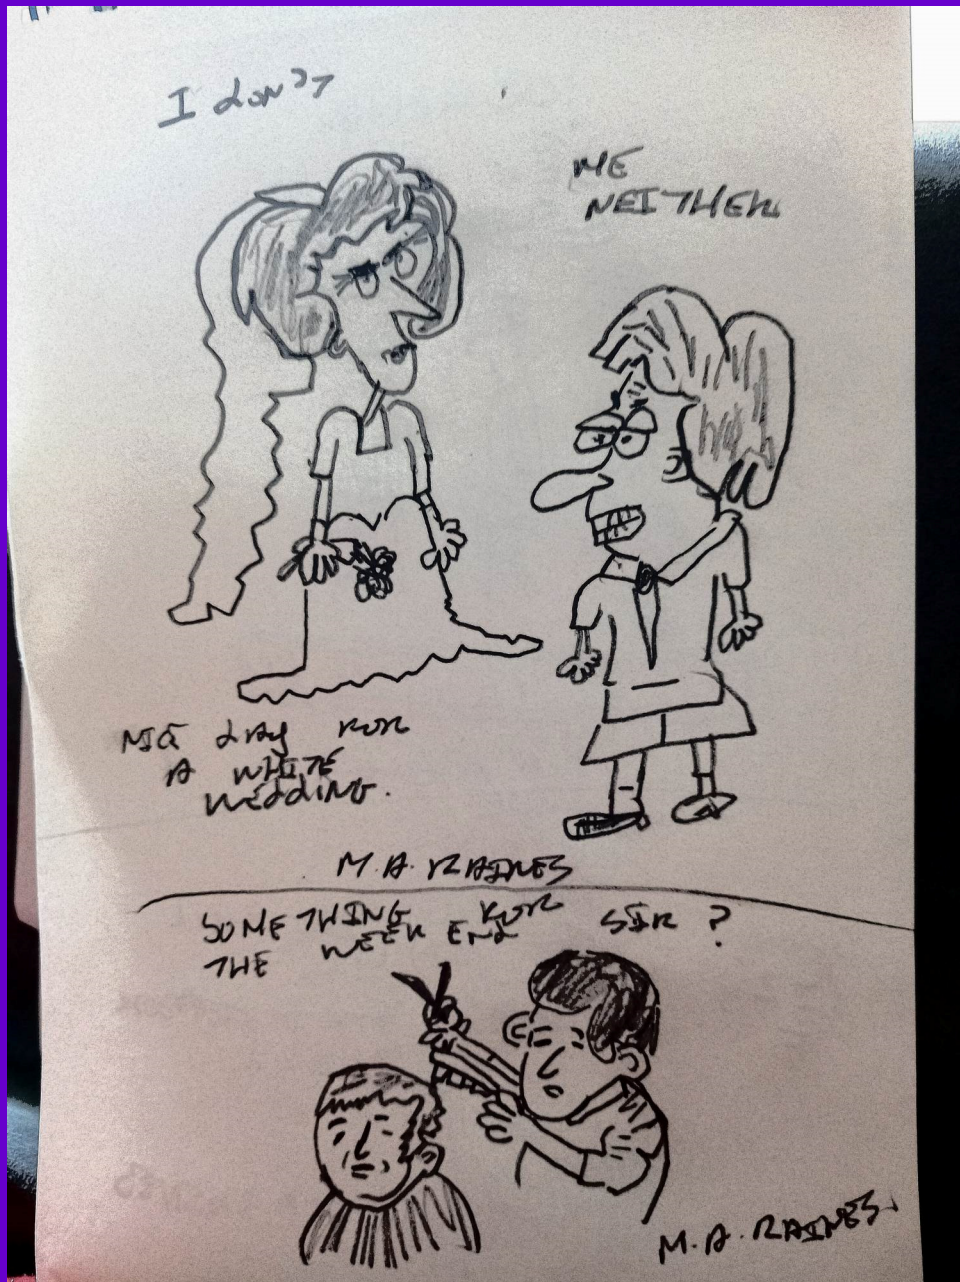 I don't
ME
NEITHER
NIG dAy FOR
A WHITE
WEddING.
M.A. RAINES
SOMETHING FOR SIR ?
THE WEEK END
M.A. RAINES